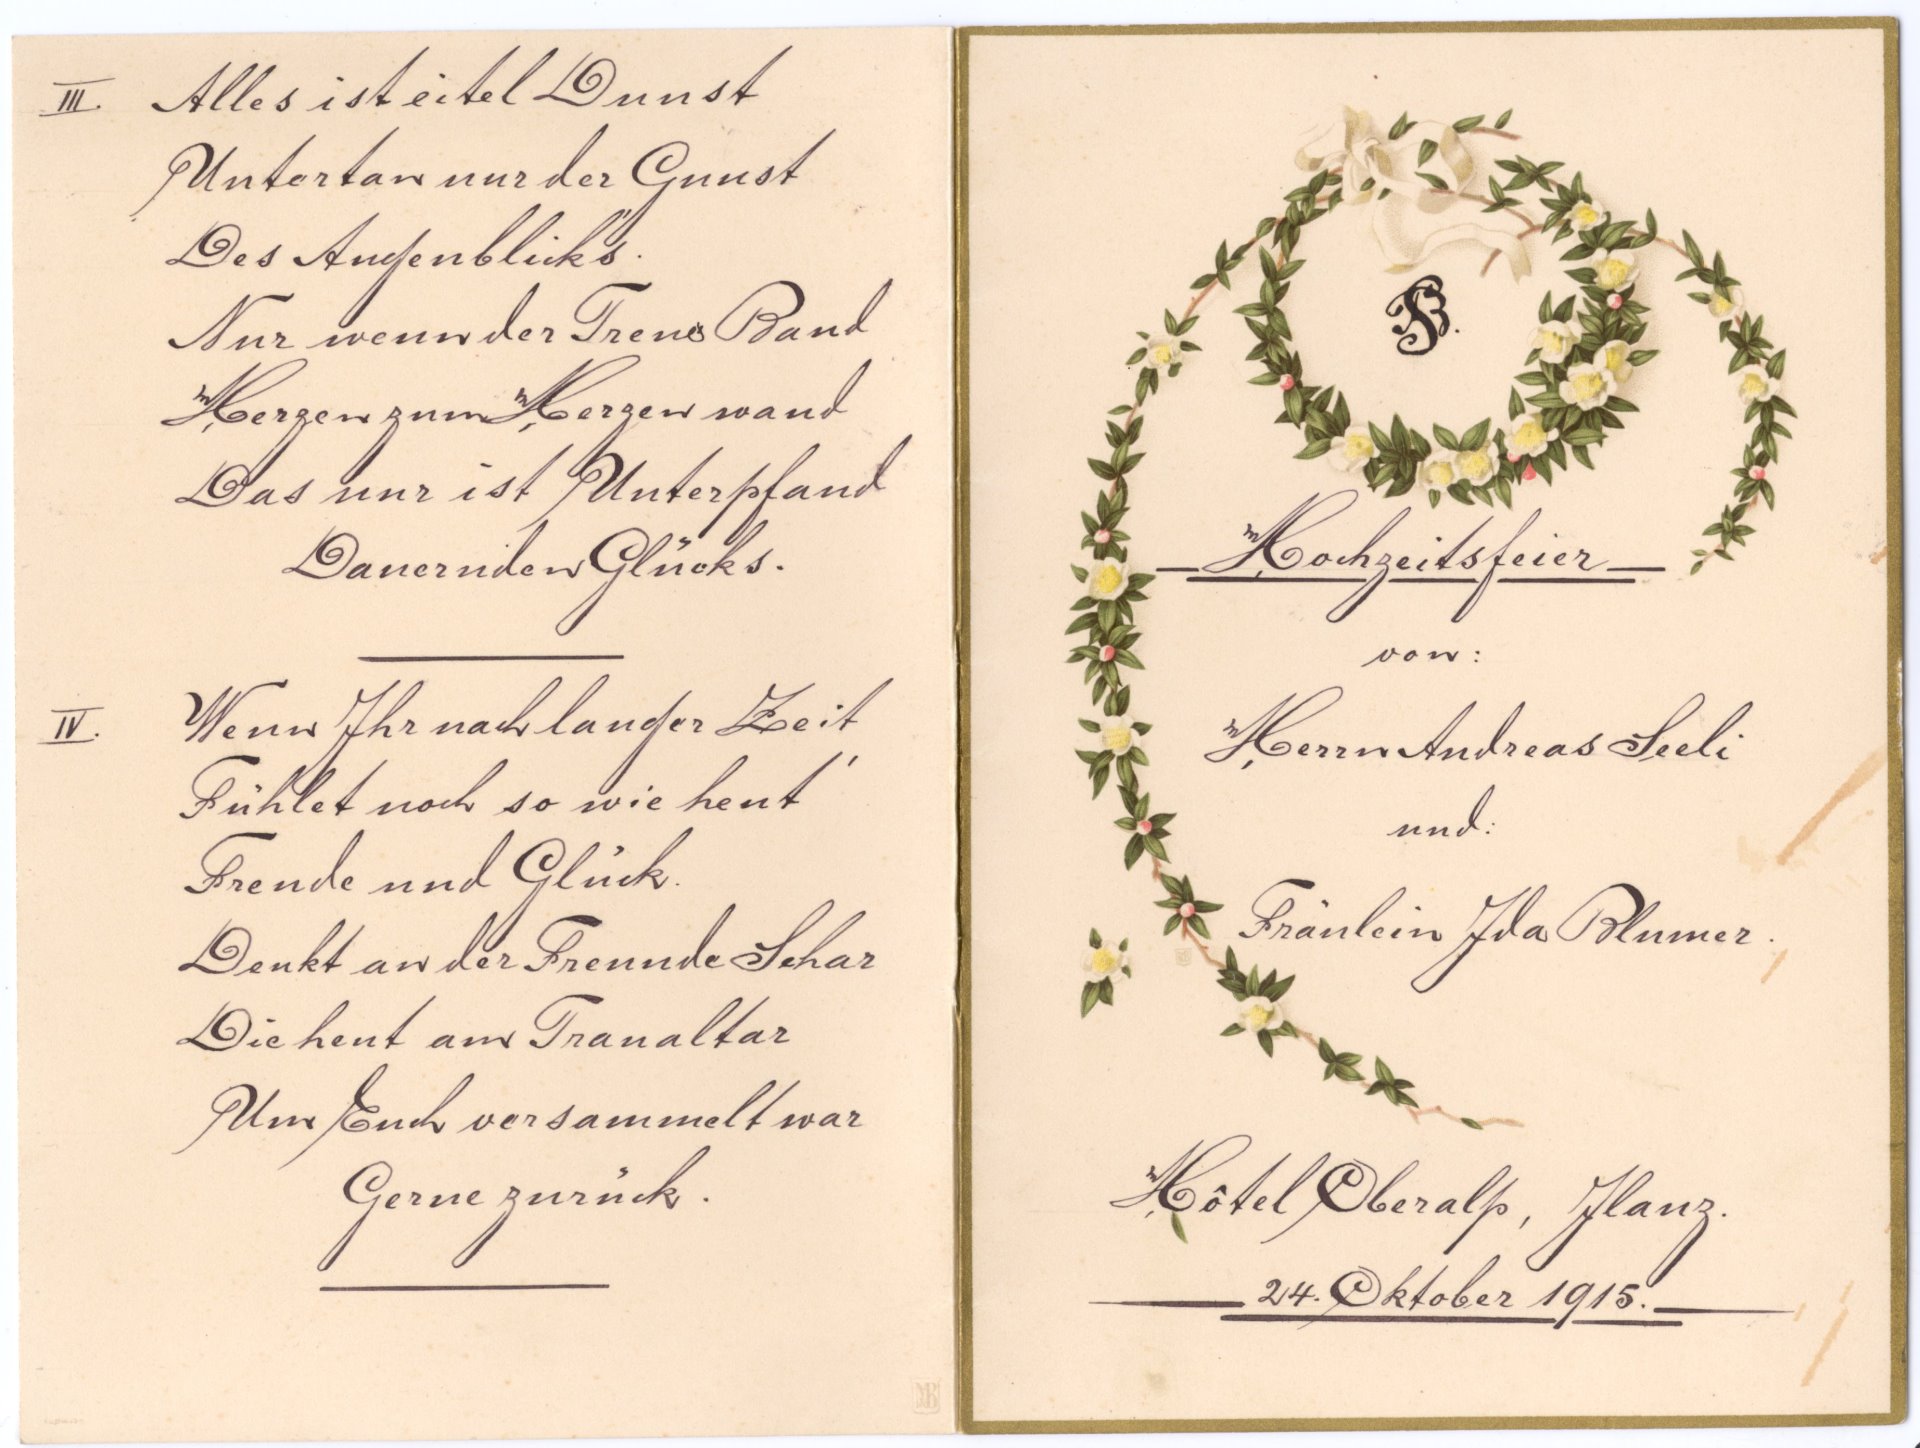 III. Alles ist eitel Dunst
Untertan nur der Gunst
Des Augenblick's.
Nur wenn der Treue Band
Herzen zum Herzen wand
Das nur ist Unterpfand
Dauernden Glücks.
IV. Wenn Ihr nach langer Zeit
Fühlet noch so wie heut'
Freude und Glück.
Denkt an der Freunde Schar
Die heut am Traualtar
Um Euch versammelt war
Gerne zurück.
SB.
Hochzeitsfeier
von:
Herrn Andreas Seeli
und:
Fräulein Ida Blumer.
Hôtel Oberalp, Ilanz.
24. Oktober 1915.